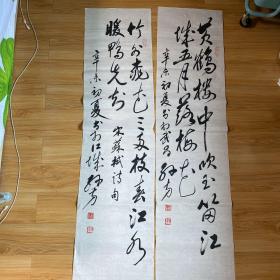 黄鹤楼中吹玉笛江
城五月落梅花
辛未初夏书于武昌
竹外桃花三两枝春江水
暖鸭先知
宋苏轼诗句
辛未初夏书于江城